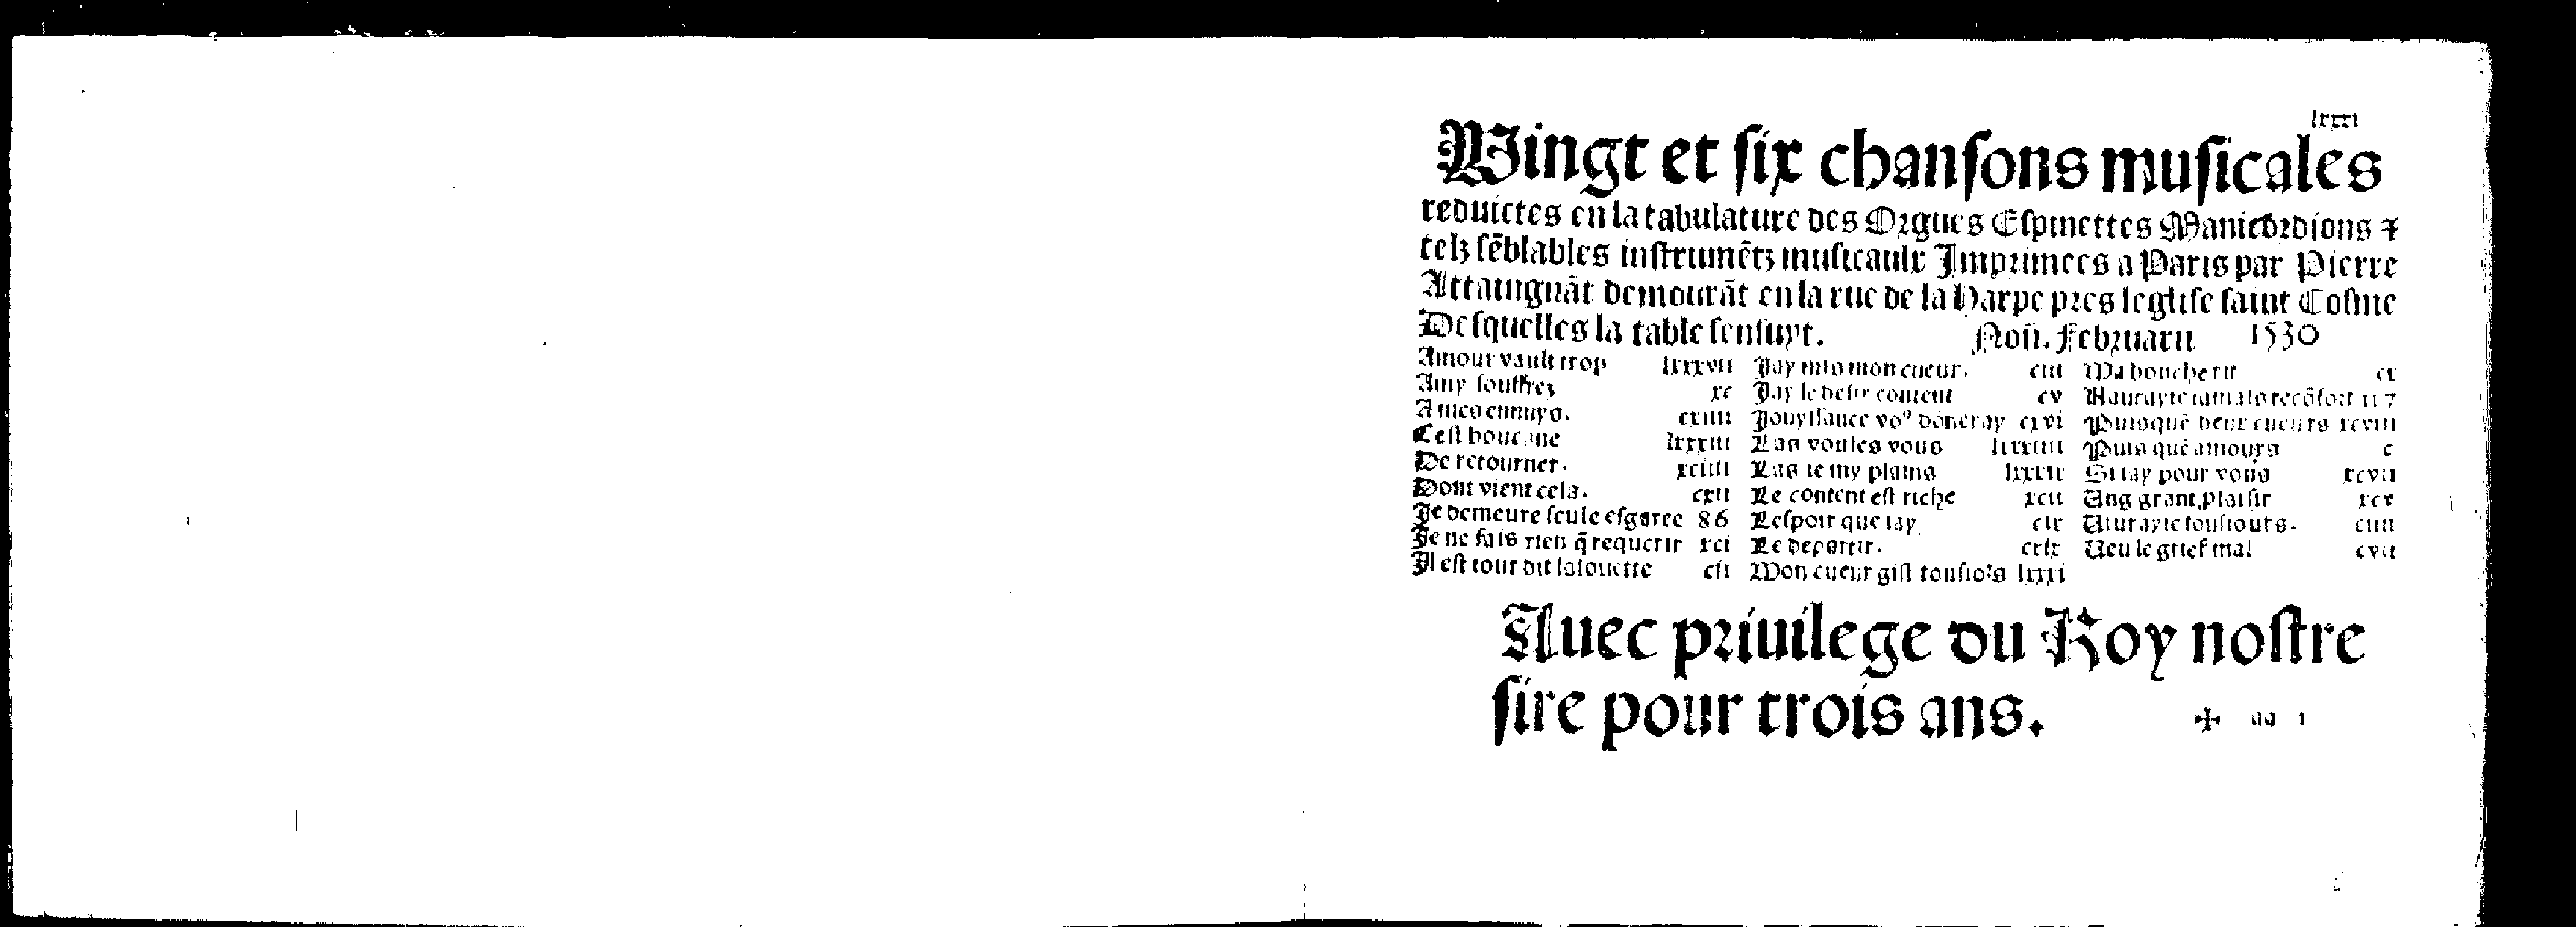 lxxxi
Vingt et six chansons musicales
reduictes en la tabulature des Orgues Espinettes Manicordions ⁊
telz sẽblables instrumẽtz musicaulx Imprimees a Paris par Pierre
Attaingnãt demourãt en la rue de la Harpe pres leglise saint Cosme
Desquelles la table sensuyt. Noñ. Februarii 1530
Amour vault trop lxxxvii Jay mis mon cueur. ciii Ma bouche rit cx
Amy souffrez xc Jay le desir content cv Nauray ie iamais recõfort 117
A mes ennuys. cxiiii Jouyssance vo⁹ dõneray cxvi Puisquẽ deux cueurs xcviii
Cest boucane lxxxiii Las voules vous lxxxiiii Puis quẽ amours c
De retourner. xciiii Las ie my plains lxxxix Si iay pour vous xcvii
Dont vient cela. cxii Le content est riche xcii Ung grant plaisir xcv
Je demeure seule esgaree 86 Lespoir que iay cix Viuray ie tousiours. ciiii
Je ne fais rien q̃ requerir xci Le departir. cxix Veu le grief mal cvii
Il est iour dit lalouette cii Mon cueur gist tousioꝛs lxxxi
Auec priuilege du Roy nostre
sire pour trois ans. ✠ aa i